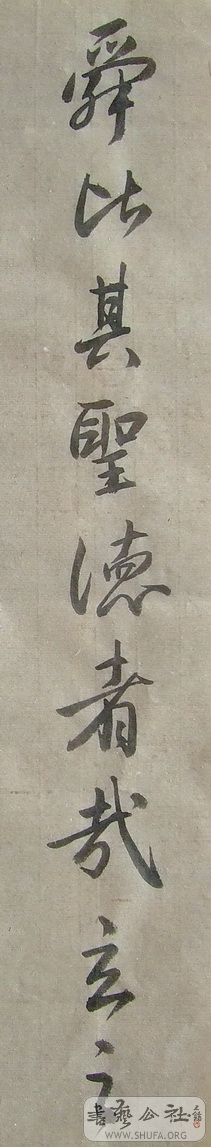 舜比其聖德者哉玄
書藝公社
WWW.SHUFA.ORG